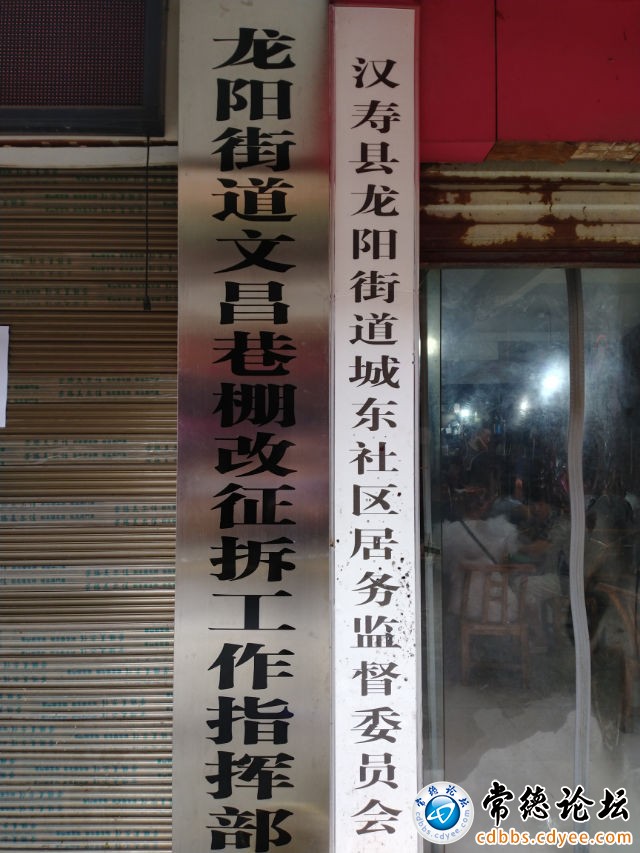 龙阳街道文昌巷棚改征拆工作指挥部
汉寿县龙阳街道城东社区居务监督委员会
常德论坛
常德论坛
cdbbs.cdyee.com